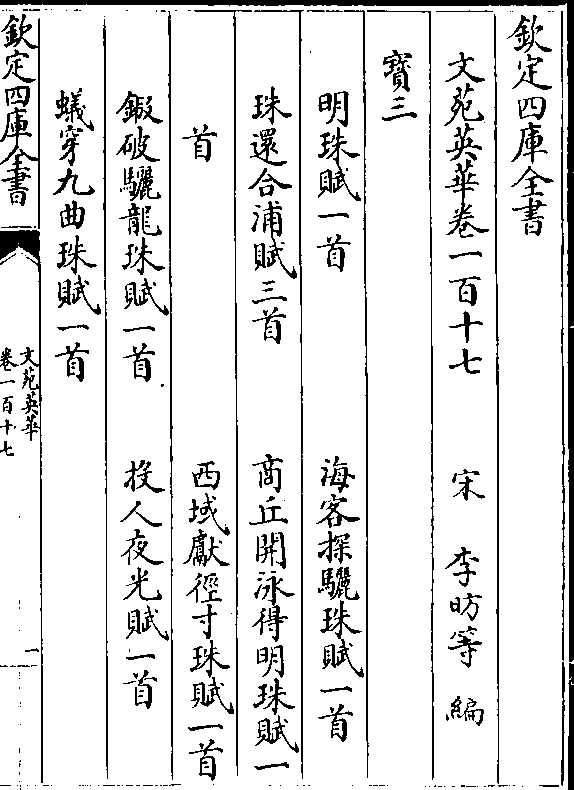 欽定四庫全書
文苑英華卷一百十七　宋　李昉等　編
寳三
明珠賦一首　海客探驪珠賦一首
珠還合浦賦三首　商丘開泳得明珠賦一
首　西域獻徑寸珠賦一首
鍜破驪龍珠賦一首　投人夜光賦一首
蟻穿九曲珠賦一首
欽定四庫全書
文苑英華
卷一百十七
一